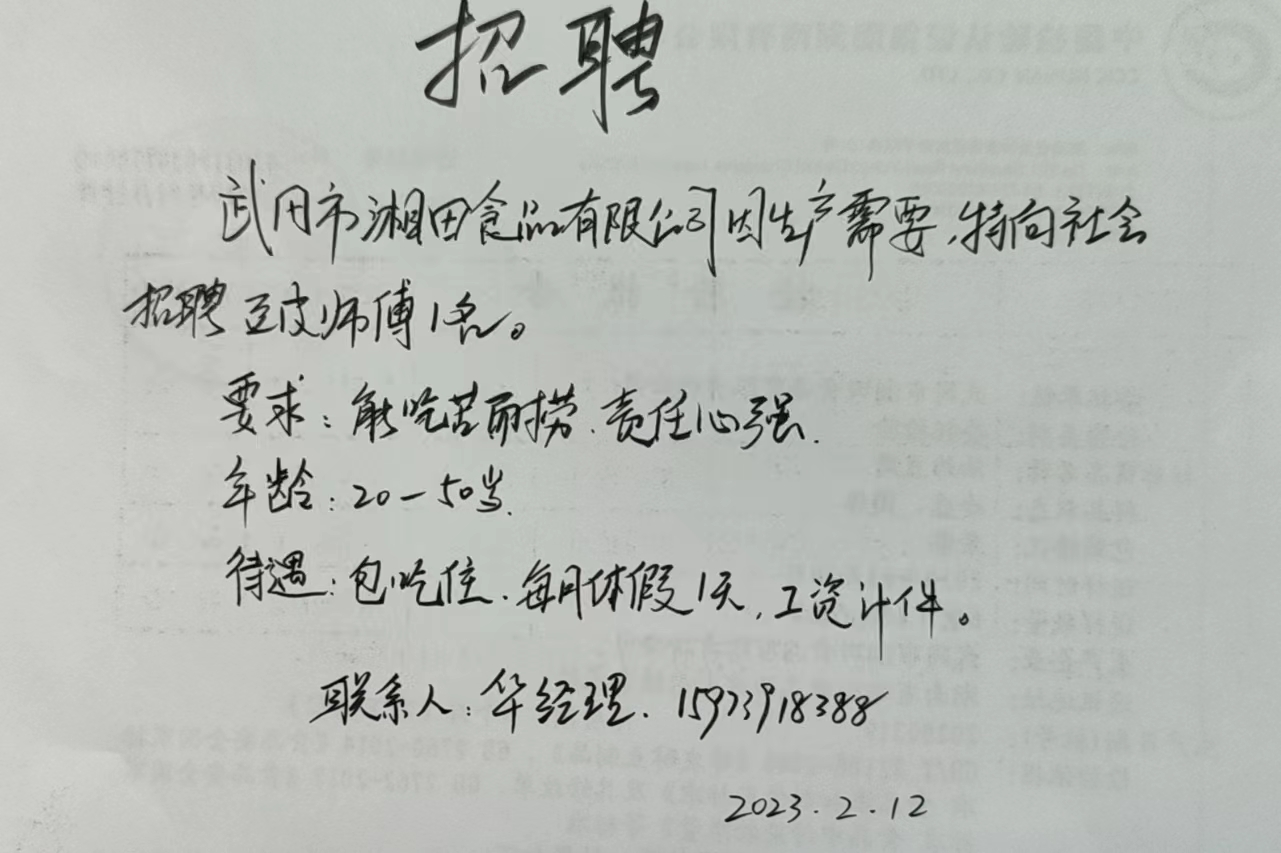 招聘
武冈市湘田食品有限公司因生产需要,特向社会
招聘豆皮师傅1名。
要求:能吃苦耐捞、责任心强.
年龄:20-50岁.
待遇:包吃住、每月休假1天,工资计件。
联系人:华经理、15973918388
2023.2.12